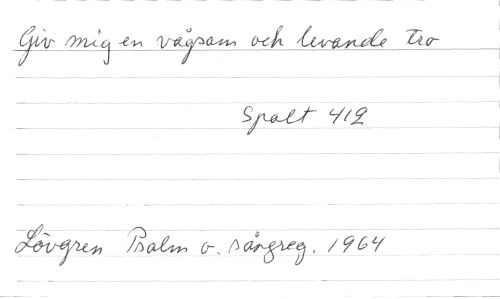 Giv mig en vågsam och levande tro
Spalt 412
Lövgren Psalm o. sångreg. 1964